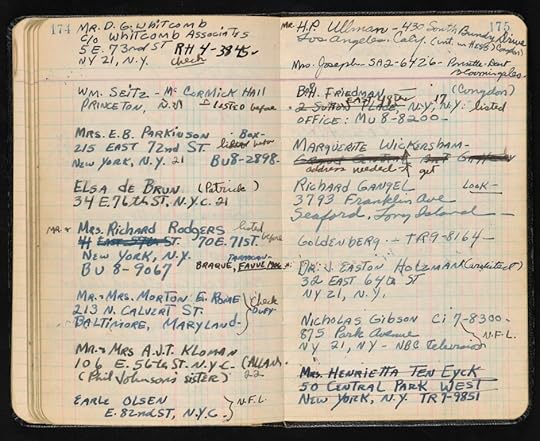 174
MR. D.G. WHITCOMB
C/O WHITCOMB ASSOCIATES
5 E. 73rd ST RH 4-3845-
NY 21, N.Y. check
WM. SEITZ - McCORMICK HALL
PRINCETON, N.J. LISTED before
MRS. E.B. PARKINSON Box-
215 EAST 72nd ST. listed before
NEW YORK, N.Y. 21 BU8-2898.
ELSA de BRUN (Patricle)
34 E. 76th ST. N.Y.C. 21
MR + MRS. Richard Rodgers listed before
ST. 70 E. 71 ST.
NEW YORK, N.Y.
BU 8-9067 BRAQUE, FAUVE
MR. + MRS. MORTON E. ROME check
213 N. CALVERT ST.
BALTIMORE, MARYLAND-
MR. + MRS A.J.T. KLOMAN
106 E. 56th ST. N.Y.C- (ALLAN-
(Phil Johnson's SISTER) 22
EARLE OLSEN N.F.L.
E. 82nd ST, N.Y.C.
175
Mr. H.P. Ullman - 430 South Bundy Drive
Los Angeles. Calif.
Mrs. Joseph- SA2-6426- Private
Bloomingdale-
B.H. FRIEDMAN (Congdon)
2 SUTTON PLACE EAST 48th N.Y, N.Y. 17 listed
OFFICE: MU 8-8200-
MARGUERITE WICKERSHAM-
address needed get
RICHARD GANGEL LOOK-
3793 Franklin Ave
Seaford, Long Island
GOLDENBERG - TR9-8164-
DR. J. EASTON HOLZMAN
32 EAST 64th ST
NY 21, N.Y.
NICHOLAS GIBSON Ci 7-8300-
875 Park Avenue N.F.L.
NY 21, NY - NBC Television
Mrs. HENRIETTA TEN EYCK
50 CENTRAL PARK WEST
NEW YORK, N.Y. TR7-9851